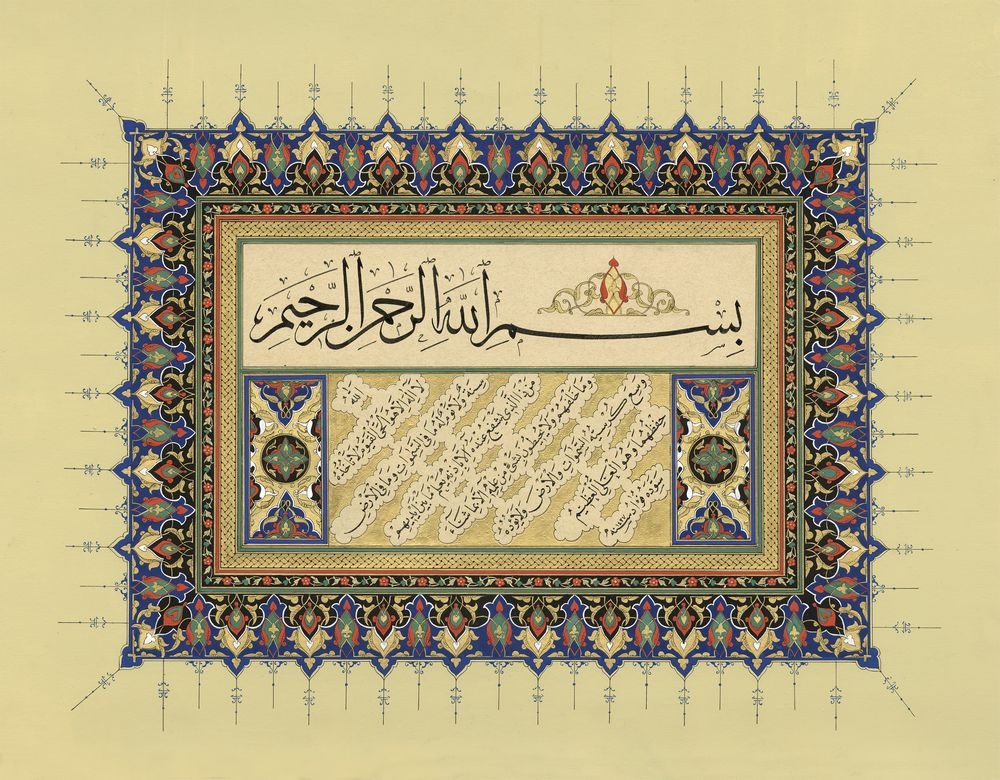 بِسْمِ اللّٰهِ الرَّحْمٰنِ الرَّحِيْمِ
اللّٰهُ
لَا إِلٰهَ إِلَّا هُوَ الْحَيُّ الْقَيُّومُ لَا تَأْخُذُهُ
سِنَةٌ وَلَا نَوْمٌ لَهُ مَا فِي السَّمٰوَاتِ وَمَا فِي الْأَرْضِ
مَنْ ذَا الَّذِي يَشْفَعُ عِنْدَهُ إِلَّا بِإِذْنِهِ يَعْلَمُ مَا بَيْنَ أَيْدِيهِمْ
وَمَا خَلْفَهُمْ وَلَا يُحِيطُونَ بِشَيْءٍ مِنْ عِلْمِهِ إِلَّا بِمَا شَاءَ
وَسِعَ كُرْسِيُّهُ السَّمٰوَاتِ وَالْأَرْضَ وَلَا يَؤُدُهُ
حِفْظُهُمَا وَهُوَ الْعَلِيُّ الْعَظِيمُ
سوده